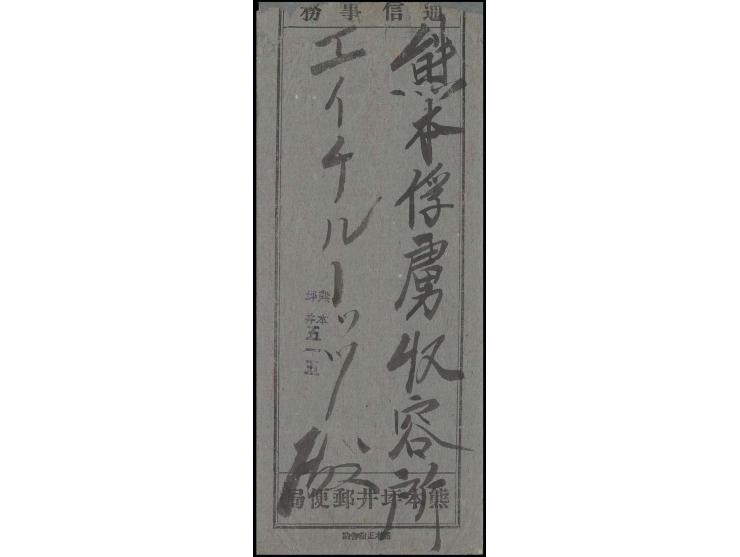 通信事務
熊本俘虜収容所
エイケルーッツ殿
熊本
坪井
五一五
熊本坪井郵便局